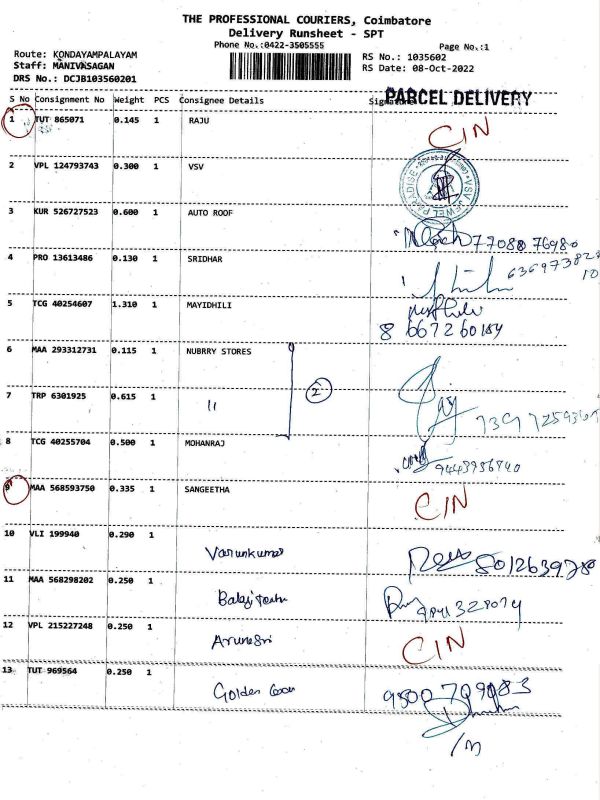 THE PROFESSIONAL COURIERS, Coimbatore
Delivery Runsheet - SPT
Phone No.:0422-3505555
Page No.:1
Route: KONDAYAMPALAYAM
Staff: MANIVASAGAN
DRS No.: DCJB103560201
RS No.: 1035602
RS Date: 08-Oct-2022
S No Consignment No Weight PCS Consignee Details Signature
PARCEL DELIVERY
1 TUT 865071 0.145 1 RAJU CIN
2 VPL 124793743 0.300 1 VSV
VSV JEWEL PARADISE
3 KUR 526727523 0.600 1 AUTO ROOF
77088 76980
4 PRO 13613486 0.130 1 SRIDHAR
5 TCG 40254607 1.310 1 MAYIDHILI
8667260184
6 MAA 293312731 0.115 1 NUBRRY STORES
2
7 TRP 6301925 0.615 1 "
8 TCG 40255704 0.500 1 MOHANRAJ
9443956840
9 MAA 568593750 0.335 1 SANGEETHA CIN
10 VLI 199940 0.290 1
Varunkumar 8012639728
11 MAA 568298202 0.250 1
Balaji
12 VPL 215227248 0.250 1
Arunesri CIN
13 TUT 969564 0.250 1
Golden 9500709083